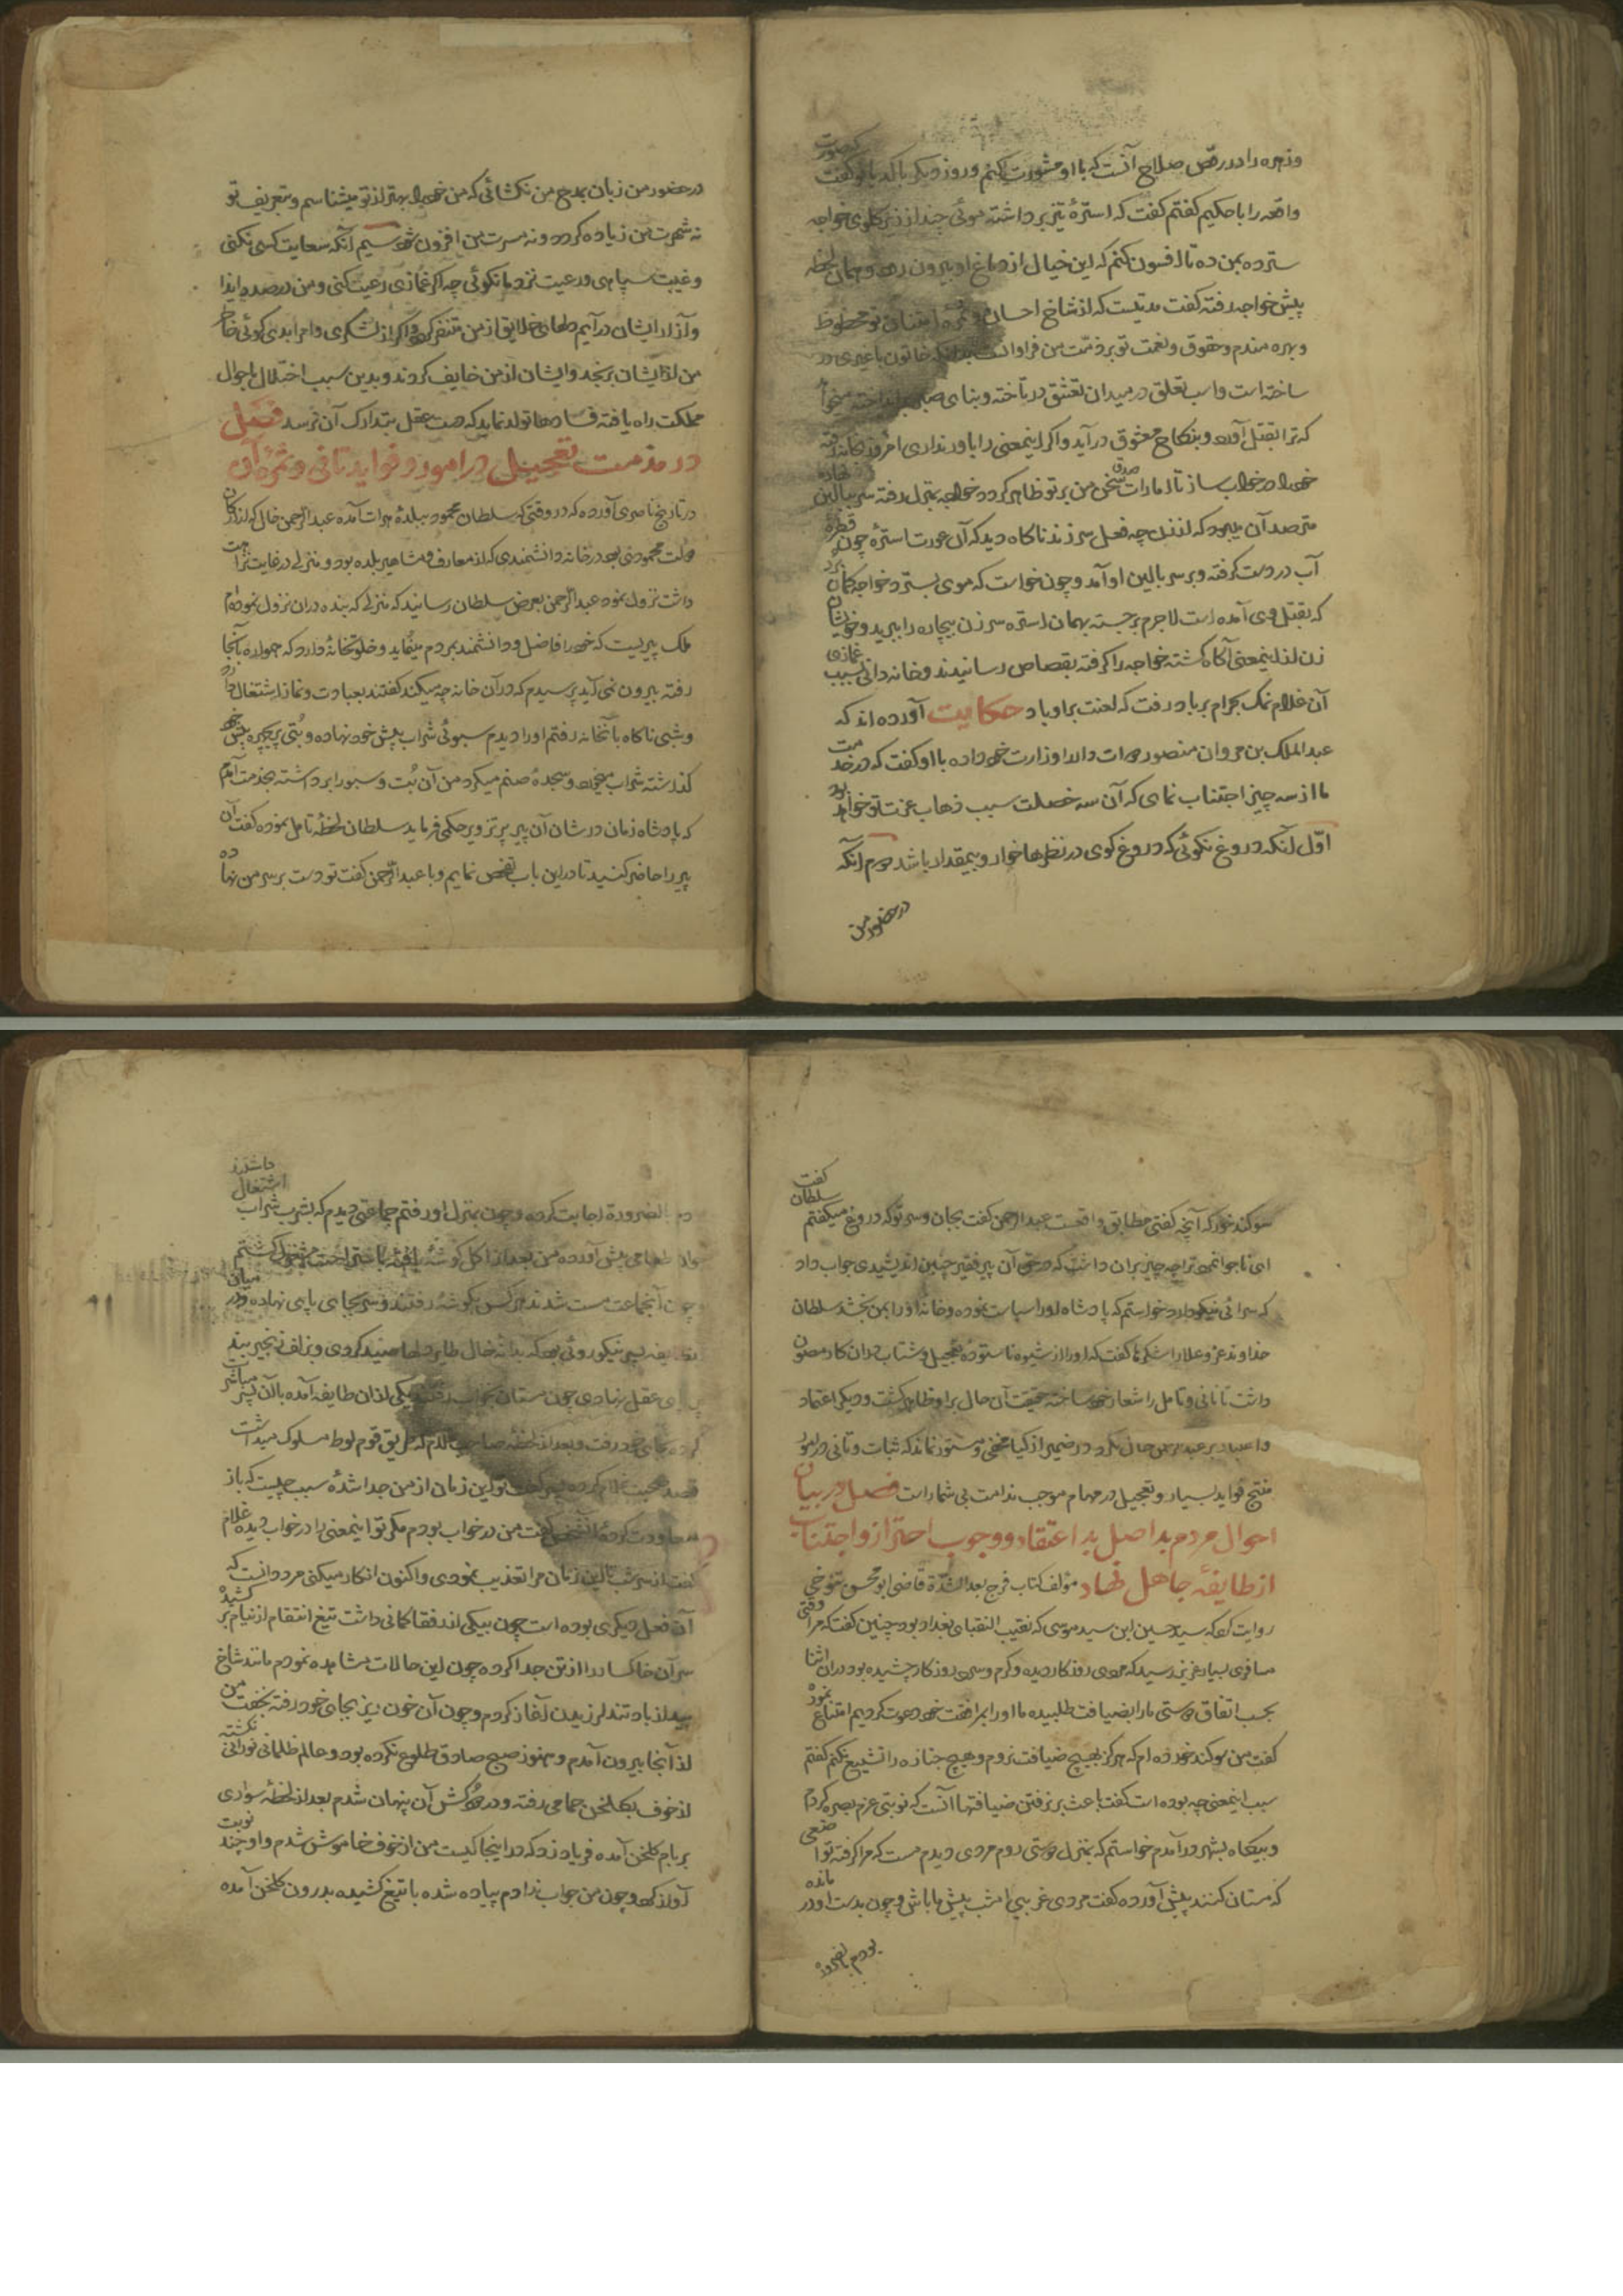 و زهره را در رقص صلاح آنست که با او مشورت کنم و روز دیگر با کدبانو گفت که صورت
واقعه را با حکیم گفتم گفت که استرهٔ تیز برداشته موئی چند از زیر گلوی خواجه
سترده بمن ده تا افسون کنم که این خیال از دماغ او بیرون رود و همان لحظه
پیش خواجه رفته گفت مدتیست که از شاخ احسان و ثمرهٔ امتنان تو محظوظ
و بهره مندم و حقوق و نعمت تو بر ذمّت من فراوانست بدانکه خاتون با غیری در
ساخته است و اسب تعلق در میدان تعشق در تاخته و بنای
که ترا بقتل آورده و بنکاح معشوق درآید و اگر اینمعنی را باور نداری امروز بخانه رفته
خود را در خواب ساز تا امارات صدق سخن من بر تو ظاهر گردد خواجه بمنزل رفته سر ببالین نهاده
مترصد آن میبود که از زن چه فعل سر زند ناگاه دید که آن عورت استرهٔ چون قطرهٔ
آب در دست گرفته و بر سر بالین او آمد و چون خواست که موی بسترد خواجه گمان برد
که بقتل وی آمده است لاجرم برجسته بهمان استره سر زن بیچاره را ببرید و خویشان
زن از اینمعنی آگاه گشته خواجه را گرفته بقصاص رسانیدند و خانه دانی بسبب غمازی
آن غلام نمک بحرام بر باد رفت که لعنت بر او باد حکایت آورده اند که
عبد الملک بن مروان منصور را وزارت خود داده با او گفت که در خدمت
ما از سه چیز اجتناب نمای که آن سه خصلت سبب ذهاب عزت تو خواهد بود
اوّل آنکه دروغ نگوئی که دروغ گوی در نظرها خوار و بیمقدار باشد دوم آنکه
در حضور من
در حضور من زبان بمدح من نگشائی که من خود را بهتر از تو میشناسم و بتعریف تو
نه شهرت من زیاده گردد و نه مسرت من افزون شود سیم آنکه سعایت کسی نکنی
و غیبت سپاهی و رعیت نزد ما نگوئی چه اگر غمازی رعیت کنی و من در صدد ایذا
و آزار ایشان درآیم دلهای خلایق از من متنفر گردد و اگر از لشکری و امرا بدی گوئی خاطر
من از ایشان برنجد و ایشان از من خایف گردند و بدین سبب اختلال باحوال
مملکت راه یافته فسادها تولد نماید که دست عقل بتدارک آن نرسد فصل
در مذمت تعجیل در امور و فواید تانی و ثمرهٔ آن
در تاریخ ناصری آورده که در وقتی که سلطان محمود ببلدهٔ هرات آمده عبد الرحمن خال که از ارکان
دولت محمودی بود در خانه دانشمندی که از معارف و مشاهیر بلده بود و منزلی در غایت نزاهت
داشت نزول نمود عبد الرحمن بعرض سلطان رسانید که منزلی که بنده در آن نزول نموده ام
ملک پیریست که خود را فاضل و دانشمند بمردم مینماید و خلوتخانهٔ دارد که همواره بآنجا
رفته بیرون نمی آید پرسیدم که در آن خانه چه میکند گفتند بعبادت و نماز اشتغال دارد
و شبی ناگاه بآنخانه رفتم او را دیدم سبوئی شراب پیش خود نهاده و بُتی پریچهره پیش خود
گذاشته شراب میخورد و سجدهٔ صنم میکرد من آن بُت و سبو را برداشته بخدمت آمدم
که پادشاه زمان در شان آن پیر پر تزویر حکمی فرماید سلطان لحظهٔ تامل نموده گفت آن
پیر را حاضر کنید تا در این باب تفحص نمایم و با عبد الرحمن گفت تو دست بر سر من نهاده
سوگند خور که آنچه گفتی مطابق واقعست عبد الرحمن گفت بجان و سر تو که دروغ میگفتم سلطان گفت
ای ناجوانمرد ترا چه چیز بر آن داشت که در حق آن پیر فقیر چنین اندیشیدی جواب داد
که سرائی نیکو دارد خواستم که پادشاه او را سیاست نموده و خانهٔ او را بمن بخشد سلطان
خداوند عز و علا را شکرها گفت که او را از شیوه ناستودهٔ تعجیل و شتاب در آن کار مصون
داشت تا تانی و تامل را شعار خود ساخته حقیقت آن حال بر او ظاهر گشت و دیگر اعتماد
و اعتبار بر عبد الرحمن خال نکرد و در ضمیر ازکیا مخفی و مستور نماند که ثبات و تانی در امور
منتج فواید بسیار و تعجیل در مهام موجب ندامت بی شمار است فصل در بیان
احوال مردم بد اصل بد اعتقاد و وجوب احتراز و اجتناب
از طایفهٔ جاهل نهاد مؤلف کتاب فرج بعد الشدّة قاضی ابو محسن تنوخی
روایت کرده که سید حسین ابن سید موسی که نقیب النقبای بغداد بود چنین گفت که مرا وقتی
مسافری بسیار عزیز رسید که مردی روزگار دیده و گرم و سرد روزگار چشیده بود در آن اثنا
بحسب اتفاق دوستی ما را بضیافت طلبیده ما او را بمرافقت خود دعوت کردیم امتناع نموده
گفت من سوگند خورده ام که هرگز بهیچ ضیافت نروم و هیچ جنازه را تشییع نکنم گفتم
سبب اینمعنی چه بوده است گفت باعث بر نرفتن ضیافتها آنست که نوبتی عزم بصره کردم
و بیگاه بشهر درآمدم خواستم که بمنزل دوستی روم مردی دیدم مست که مرا گرفته تواضعی
که مستان کنند پیش آورده گفت مردی غریبی امشب پیش ما باش و چون بدست او در مانده
بودم بالضروره
بالضرورة اجابت کرده و چون بمنزل او رفتم جماعتی دیدم که بشرب شراب اشتغال داشتند
طعامی پیش آورده من بعد از اکل گوشهٔ یافته باستراحت مشغول گشتم
و چون آنجماعت مست شدند هر کس بگوشهٔ رفتند و سر بجای پای نهاده و در میان
پسر نیکو روئی بود که بدانه خال طایر دلها صید کردی و بزلف زنجیر بند
بر پای عقل نهادی چون مستان بخواب رفتند یکی از آن طایفه آمده با آن پسر مباشرت
کرد و بجای خود رفت و بعد از لحظهٔ صاحب غلام که طریق قوم لوط مسلوک میداشت
قصد صحبت غلام کرده پسر گفت تو این زمان از من جدا شدهٔ سبب چیست که باز
معاودت کردهٔ آنشخص گفت من در خواب بودم مگر تو اینمعنی را در خواب دیدهٔ غلام
گفت از سر شب تا این زمان مرا تعذیب نمودی و اکنون انکار میکنی مرد دانست که
آن فعل دیگری بوده است چون بیکی از رفقا گمانی داشت تیغ انتقام از نیام بر کشیده
سر آن خاکسار را از تن جدا کرده چون این حالات مشاهده نمودم مانند شاخ
بید از باد تند لرزیدن آغاز کردم و چون آن خون ریز بجای خود رفته بخفت من
از آنجا بیرون آمدم و هنوز صبح صادق طلوع نکرده بود و عالم ظلمانی نورانی نگشته
از خوف بگلخن حمامی رفته و در دودکش آن پنهان شدم بعد از لحظهٔ سواری
بر بام گلخن آمده فریاد زد که در اینجا کیست من از خوف خاموش شدم و او چند نوبت
آواز کرد و چون من جواب ندادم پیاده شده با تیغ کشیده بدرون گلخن آمده